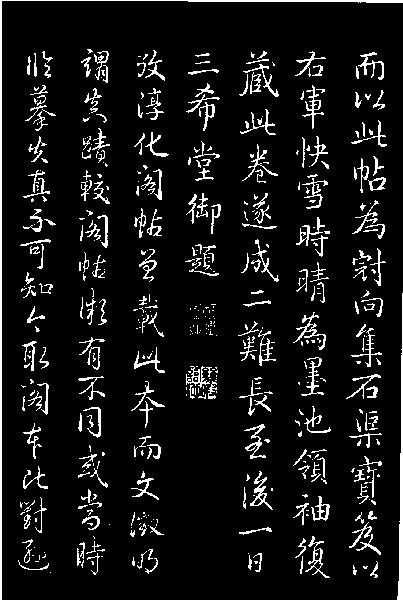 而以此帖為冠向集石渠寶笈以
右軍快雪時晴為墨池領袖復
藏此卷遂成二難長至後一日
三希堂御題
攷淳化閣帖曾載此本而文微的
謂真蹟較閣帖漸有不同或當時
臨摹失真不可知今取閣本比對